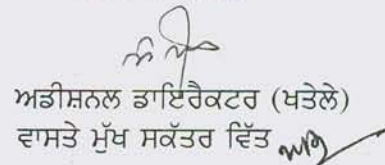 ਅਡੀਸ਼ਨਲ ਡਾਇਰੈਕਟਰ (ਖਤੇਲੇ)
ਵਾਸਤੇ ਮੁੱਖ ਸਕੱਤਰ ਵਿੱਤ